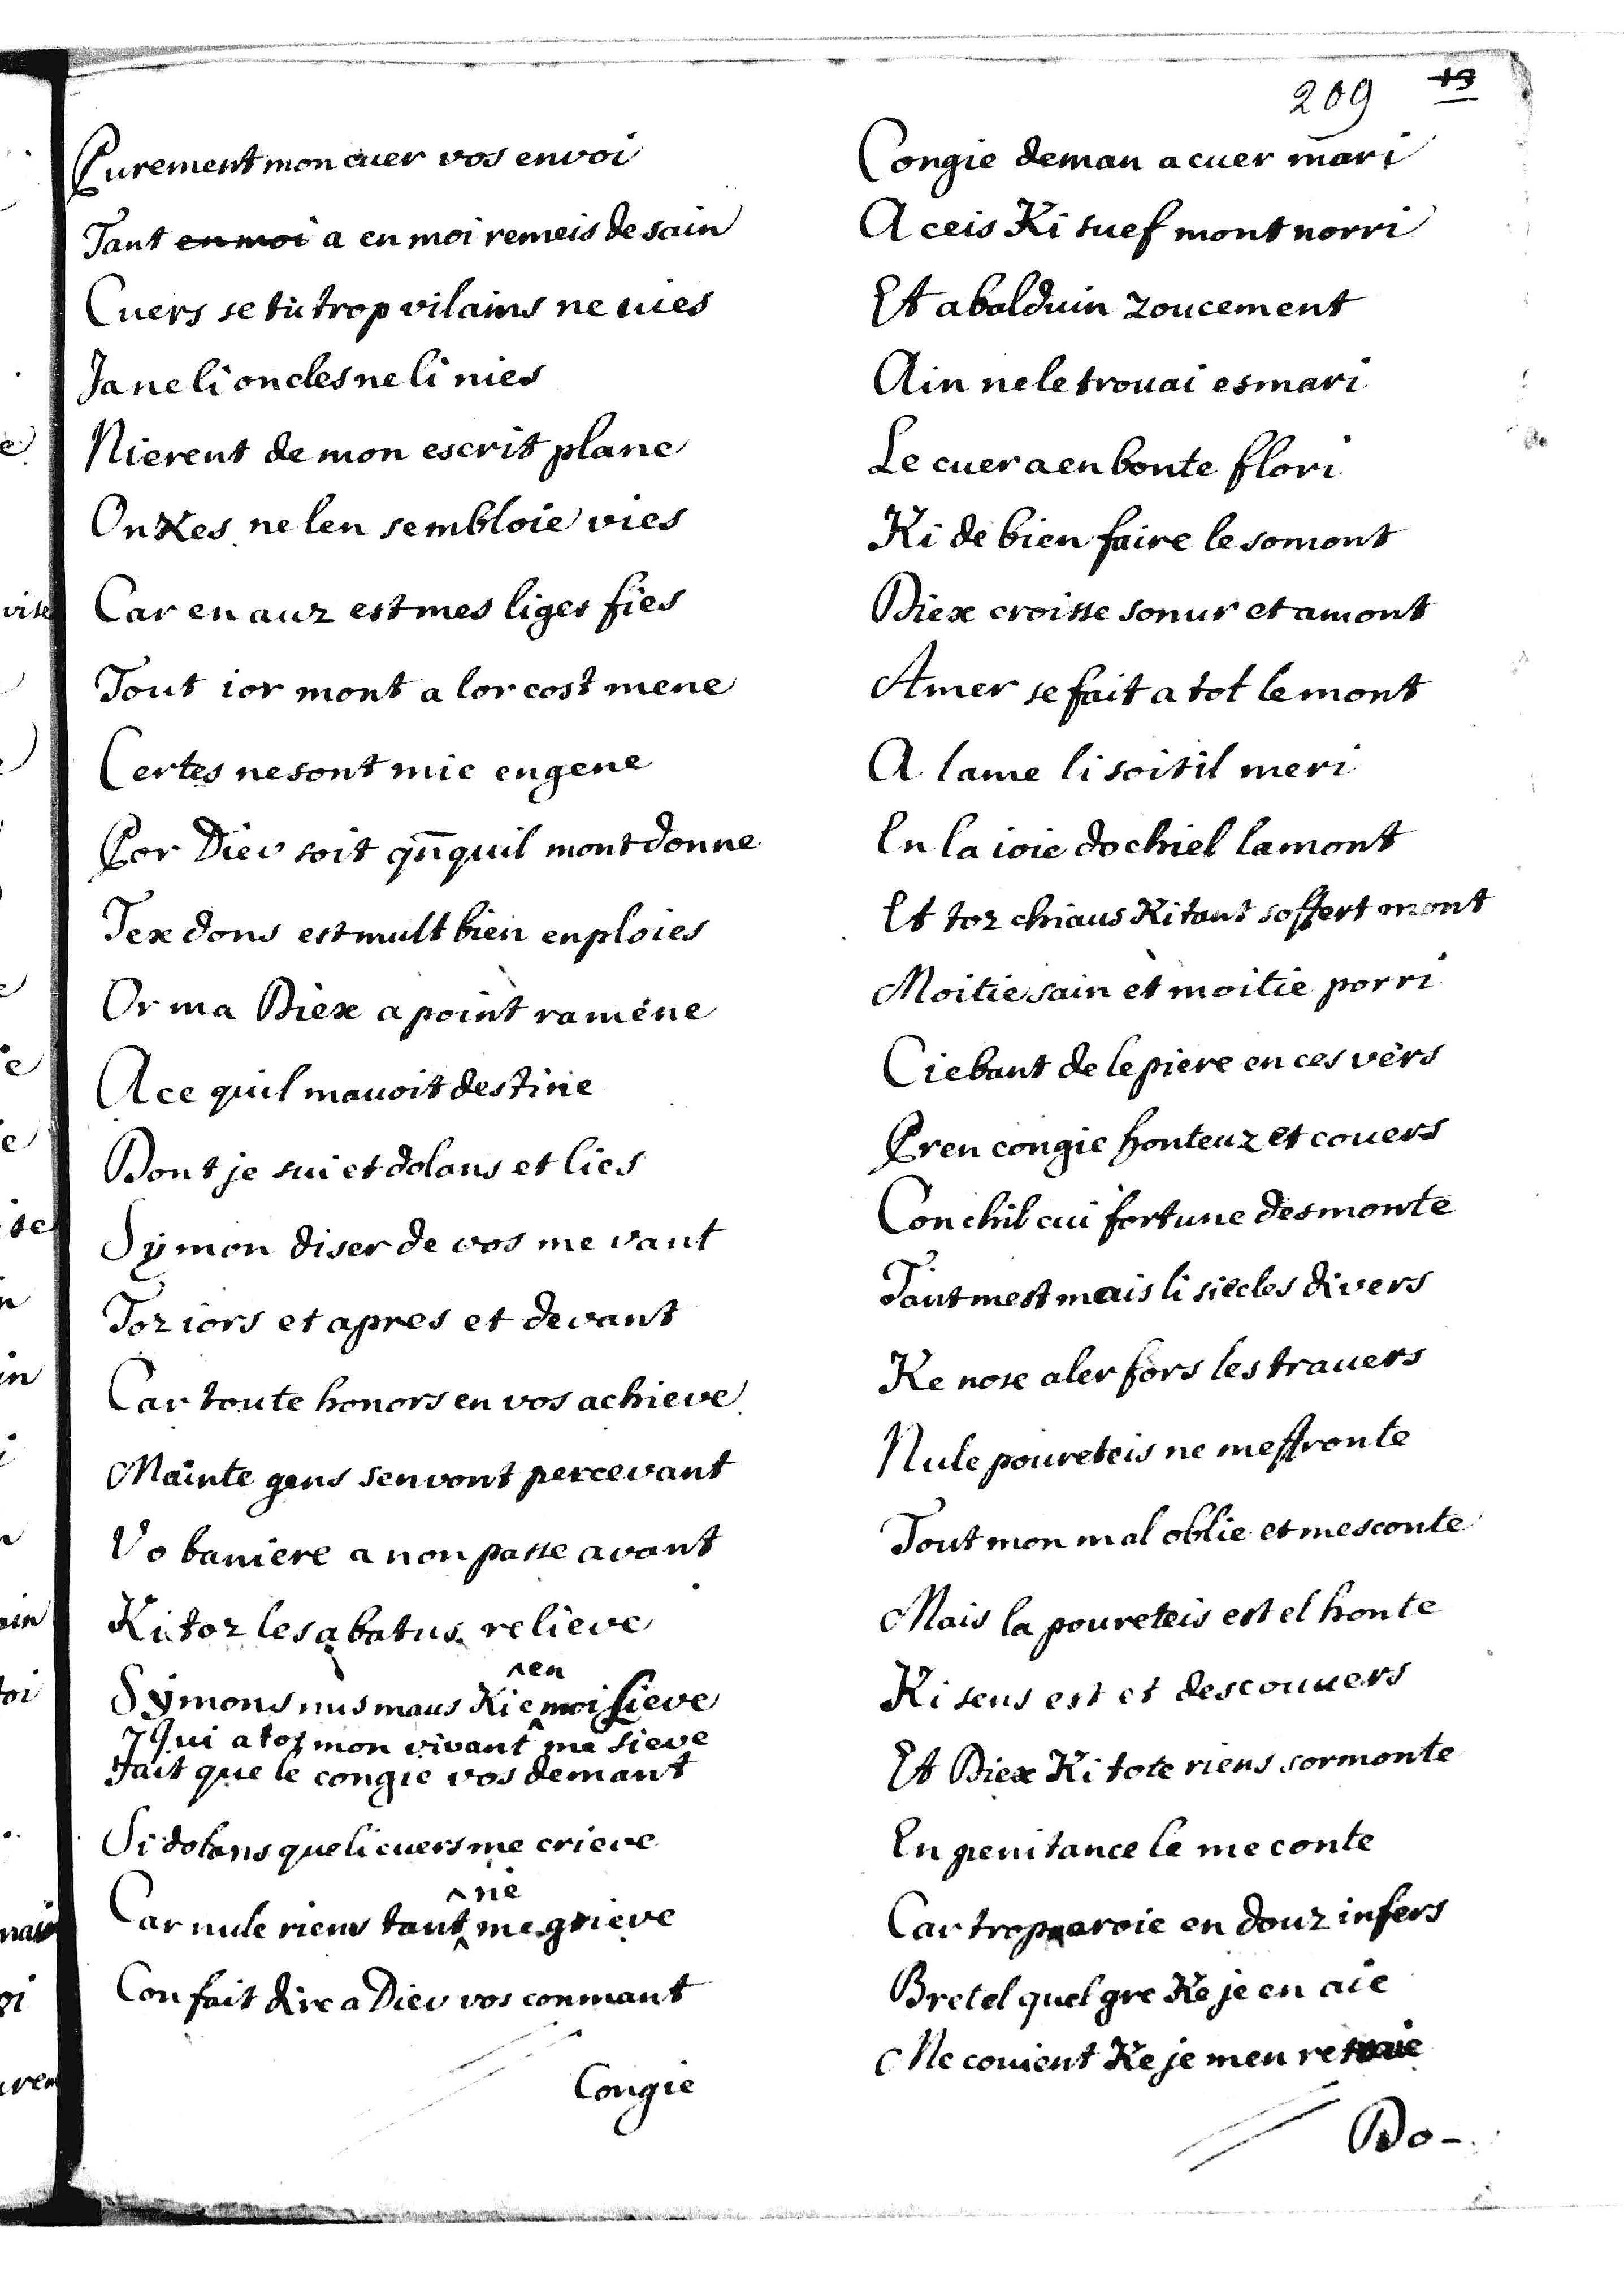 209 13
Purement mon cuer vos envoi
Tant en moi a en moi remeis de sain
Cuers se tu trop vilains ne uies
Ja ne li oncles ne li nies
Nierent de mon escrit plane
OnKes ne len sembloie vies
Car en auz est mes liges fies
Tout ior mont a lor cost mene
Certes ne sont mie engene
Por Diev soit qn̄quil mont donne
Tex dons est mult bien enploies
Or ma Diex a point ramene
A ce quil mauoit destine
Dont je sui et dolans et lies
Symon diser de vos me vant
Toz iors et apres et devant
Car toute honors en vos achieve
Mainte gens senvont percevant
Vo baniere a non passe avant
Ki toz les abatus relieve
en
Symons nus maus Ki e moi lieve
7 Qui a toz mon vivant me sieve
Fait que le congie vos demant
Si dolans que li cuers me crieve
ne
Car nule riens tant me grieve
Con fait dire a Diev vos conmant
Congie
Congie deman a cuer mari
A ceis Ki suef mont norri
Et a balduin zoucement
Ain ne le trouai esmari
Le cuer a en bonte flori
Ki de bien faire le somont
Diex croisse sonur et amont
Amer se fait a tot le mont
A lame li soitil meri
En la ioie do chiel lamont
Et toz chiaus Ki tant soffert mont
Moitie sain et moitie porri
Ciebant de le piere en ces vers
Pren congie honteuz et couers
Con chil cui fortune desmonte
Tant mest mais li siecles divers
Ke nose aler fors les trauers
Nule poureteis ne meffronte
Tout mon mal oblie et mesconte
Mais la poureteis est el honte
Ki sens est et descouuers
Et Diex Ki tote riens sormonte
En penitance le me conte
Car trop aroie en douz infers
Bretel quel gre Ke je en aie
Me couient Ke je men retraie
Do-